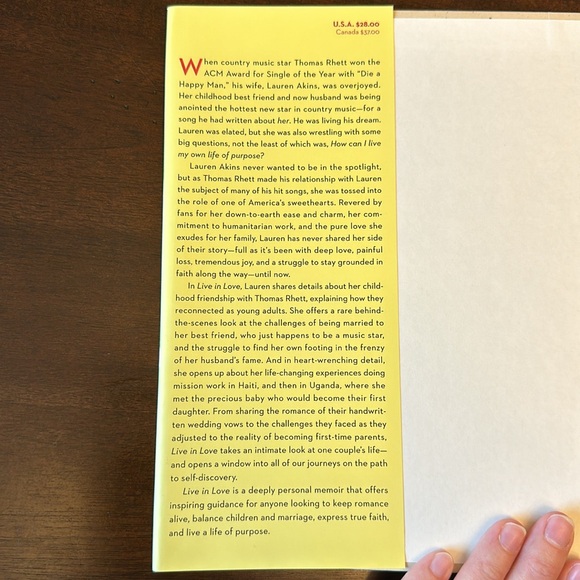 U.S.A. $28.00
Canada $37.00
When country music star Thomas Rhett won the
ACM Award for Single of the Year with "Die a
Happy Man," his wife, Lauren Akins, was overjoyed.
Her childhood best friend and now husband was being
anointed the hottest new star in country music—for a
song he had written about her. He was living his dream.
Lauren was elated, but she was also wrestling with some
big questions, not the least of which was, How can I live
my own life of purpose?
Lauren Akins never wanted to be in the spotlight,
but as Thomas Rhett made his relationship with Lauren
the subject of many of his hit songs, she was tossed into
the role of one of America's sweethearts. Revered by
fans for her down-to-earth ease and charm, her com-
mitment to humanitarian work, and the pure love she
exudes for her family, Lauren has never shared her side
of their story—full as it's been with deep love, painful
loss, tremendous joy, and a struggle to stay grounded in
faith along the way—until now.
In Live in Love, Lauren shares details about her child-
hood friendship with Thomas Rhett, explaining how they
reconnected as young adults. She offers a rare behind-
the-scenes look at the challenges of being married to
her best friend, who just happens to be a music star,
and the struggle to find her own footing in the frenzy
of her husband's fame. And in heart-wrenching detail,
she opens up about her life-changing experiences doing
mission work in Haiti, and then in Uganda, where she
met the precious baby who would become their first
daughter. From sharing the romance of their handwrit-
ten wedding vows to the challenges they faced as they
adjusted to the reality of becoming first-time parents,
Live in Love takes an intimate look at one couple's life—
and opens a window into all of our journeys on the path
to self-discovery.
Live in Love is a deeply personal memoir that offers
inspiring guidance for anyone looking to keep romance
alive, balance children and marriage, express true faith,
and live a life of purpose.